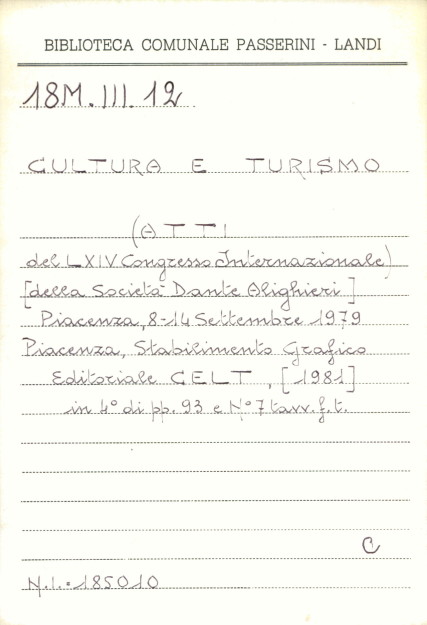 BIBLIOTECA COMUNALE PASSERINI - LANDI
18M.III.12
CULTURA E TURISMO
(ATTI
del LXIV Congresso Internazionale)
[della Società Dante Alighieri]
Piacenza, 8-14 Settembre 1979
Piacenza, Stabilimento Grafico
Editoriale CELT, [1981]
in 4° di pp. 93 e N° 7 tavv. f. t.
C
N.I.=185010